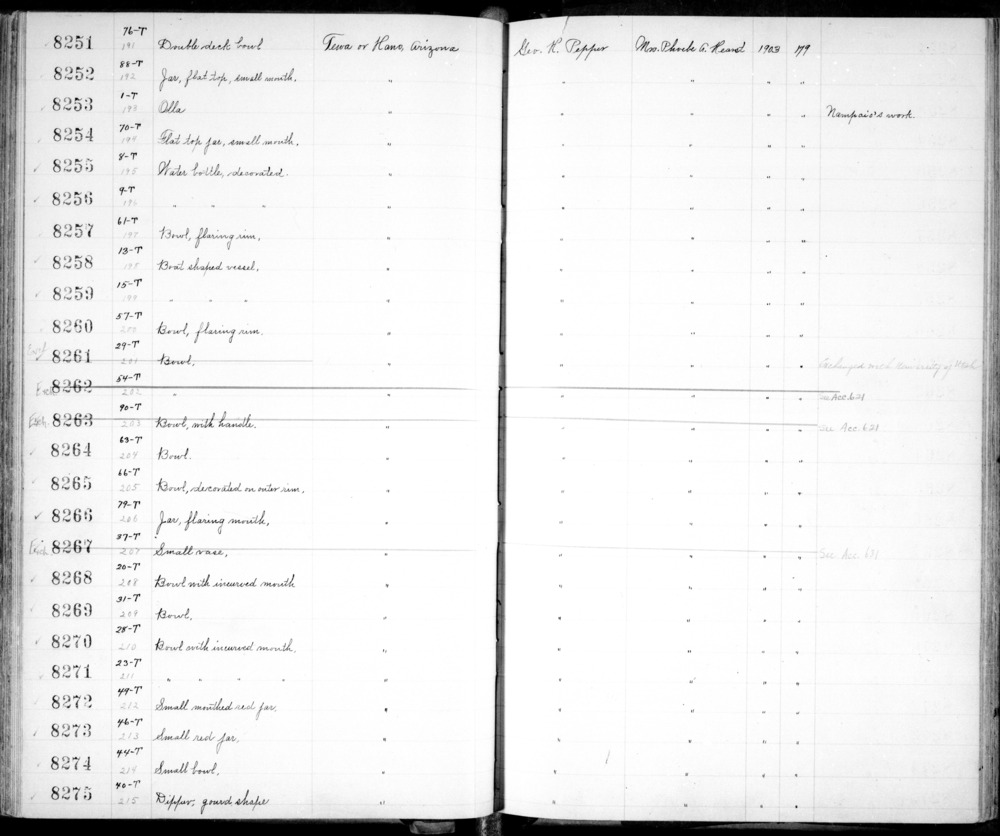 8251 76-T 191 Double deck bowl Tewa or Hano, Arizona Geo. H. Pepper Mrs. Phoebe A. Hearst 1903 179
8252 88-T 192 Jar, flat top, small mouth. " " " " "
8253 1-T 193 Olla " " " " " Nampaio's work.
8254 70-T 194 Flat top jar, small mouth, " " " " "
8255 8-T 195 Water bottle, decorated. " " " " "
8256 9-T 196 " " " " " " " "
8257 61-T 197 Bowl, flaring rim, " " " " "
8258 13-T 198 Boat shaped vessel, " " " " "
8259 15-T 199 " " " " " " " "
8260 57-T 200 Bowl, flaring rim. " " " " "
8261 29-T 201 Bowl, " " " " " Exchanged with University of Utah
Exch. 8262 54-T 202 " " " " " " see Acc. 621
Exch. 8263 90-T 203 Bowl, with handle. " " " " " see Acc. 621
8264 63-T 204 Bowl. " " " " "
8265 66-T 205 Bowl, decorated on outer rim, " " " " "
8266 79-T 206 Jar, flaring mouth, " " " " "
Exch. 8267 37-T 207 Small vase, " " " " " See Acc.
8268 20-T 208 Bowl with incurved mouth " " " " "
8269 31-T 209 Bowl, " " " " "
8270 28-T 210 Bowl with incurved mouth, " " " " "
8271 23-T 211 " " " " " " " " "
8272 49-T 212 Small mouthed red jar. " " " " "
8273 46-T 213 Small red jar, " " " " "
8274 44-T 214 Small bowl, " " " " "
8275 40-T 215 Dipper, gourd shape " " " " "